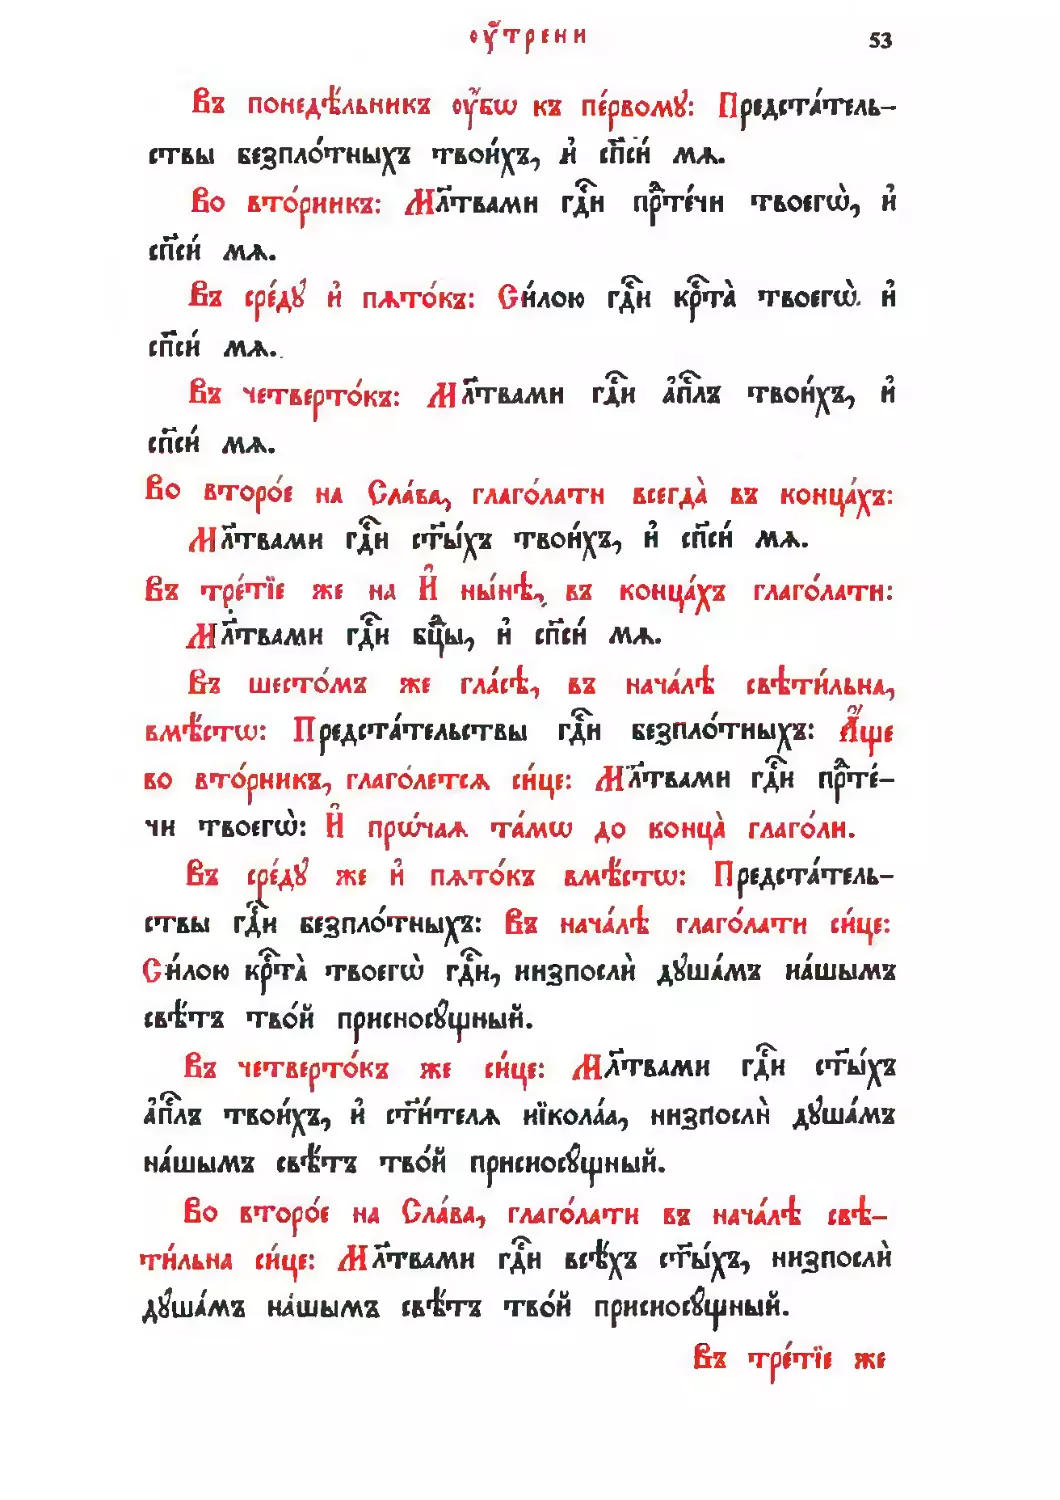 оу҆́трени 53
Въ понедѣ́льникъ оу҆́бѡ къ пе́рвомꙋ: Предста́тель-
ствы безпло́тныхъ твои́хъ, и҆ сп҃сѝ мѧ.
Во вто́рникъ: Мл҃твами гдⷭ҇и прⷣте́чи твоегѡ̀, и҆
сп҃сѝ мѧ.
Въ сре́дꙋ и҆ пѧто́къ: Си́лою гдⷭ҇и крⷭ҇та̀ твоегѡ̀. и҆
сп҃сѝ мѧ.
Въ четверто́къ: Мл҃твами гдⷭ҇и а҆пⷭ҇лъ твои́хъ, и҆
сп҃сѝ мѧ.
Во второ́е на Сла́ва, глаго́лати всегда̀ въ конца́хъ:
Мл҃твами гдⷭ҇и ст҃ы́хъ твои́хъ, и҆ сп҃сѝ мѧ.
Въ тре́тїе же на И҆ ны́нѣ, въ конца́хъ глаго́лати:
Мл҃твами гдⷭ҇и бцⷣы, и҆ сп҃сѝ мѧ.
Въ шесто́мъ же гла́сѣ, въ нача́лѣ свѣти́льна,
вмѣ́стѡ: Предста́тельствы гдⷭ҇и безпло́тныхъ: А҆́ще
во вто́рникъ, глаго́летсѧ си́це: Мл҃твами гдⷭ҇и прⷣте́-
чи твоегѡ̀: И҆ прѡ́чаѧ та́мѡ до конца̀ глаго́ли.
Въ сре́дꙋ же и҆ пѧто́къ вмѣ́стѡ: Предста́тель-
ствы гдⷭ҇и безпло́тныхъ: Въ нача́лѣ глаго́лати си́це:
Си́лою крⷭ҇та̀ твоегѡ̀ гдⷭ҇и, низпослѝ дꙋша́мъ на́шымъ
свѣ́тъ тво́й присносꙋ́щный.
Въ четверто́къ же си́це: Мл҃твами гдⷭ҇и ст҃ы́хъ
а҆пⷭ҇лъ твои́хъ, и҆ ст҃и́телѧ нїкола́а, низпослѝ дꙋша́мъ
на́шымъ свѣ́тъ тво́й присносꙋ́щный.
Во второ́е на Сла́ва, глаго́лати въ нача́лѣ свѣ-
ти́льна си́це: Мл҃твами гдⷭ҇и всѣ́хъ ст҃ы́хъ, низпослѝ
дꙋша́мъ на́шымъ свѣ́тъ тво́й присносꙋ́щный.
Въ тре́тїе же